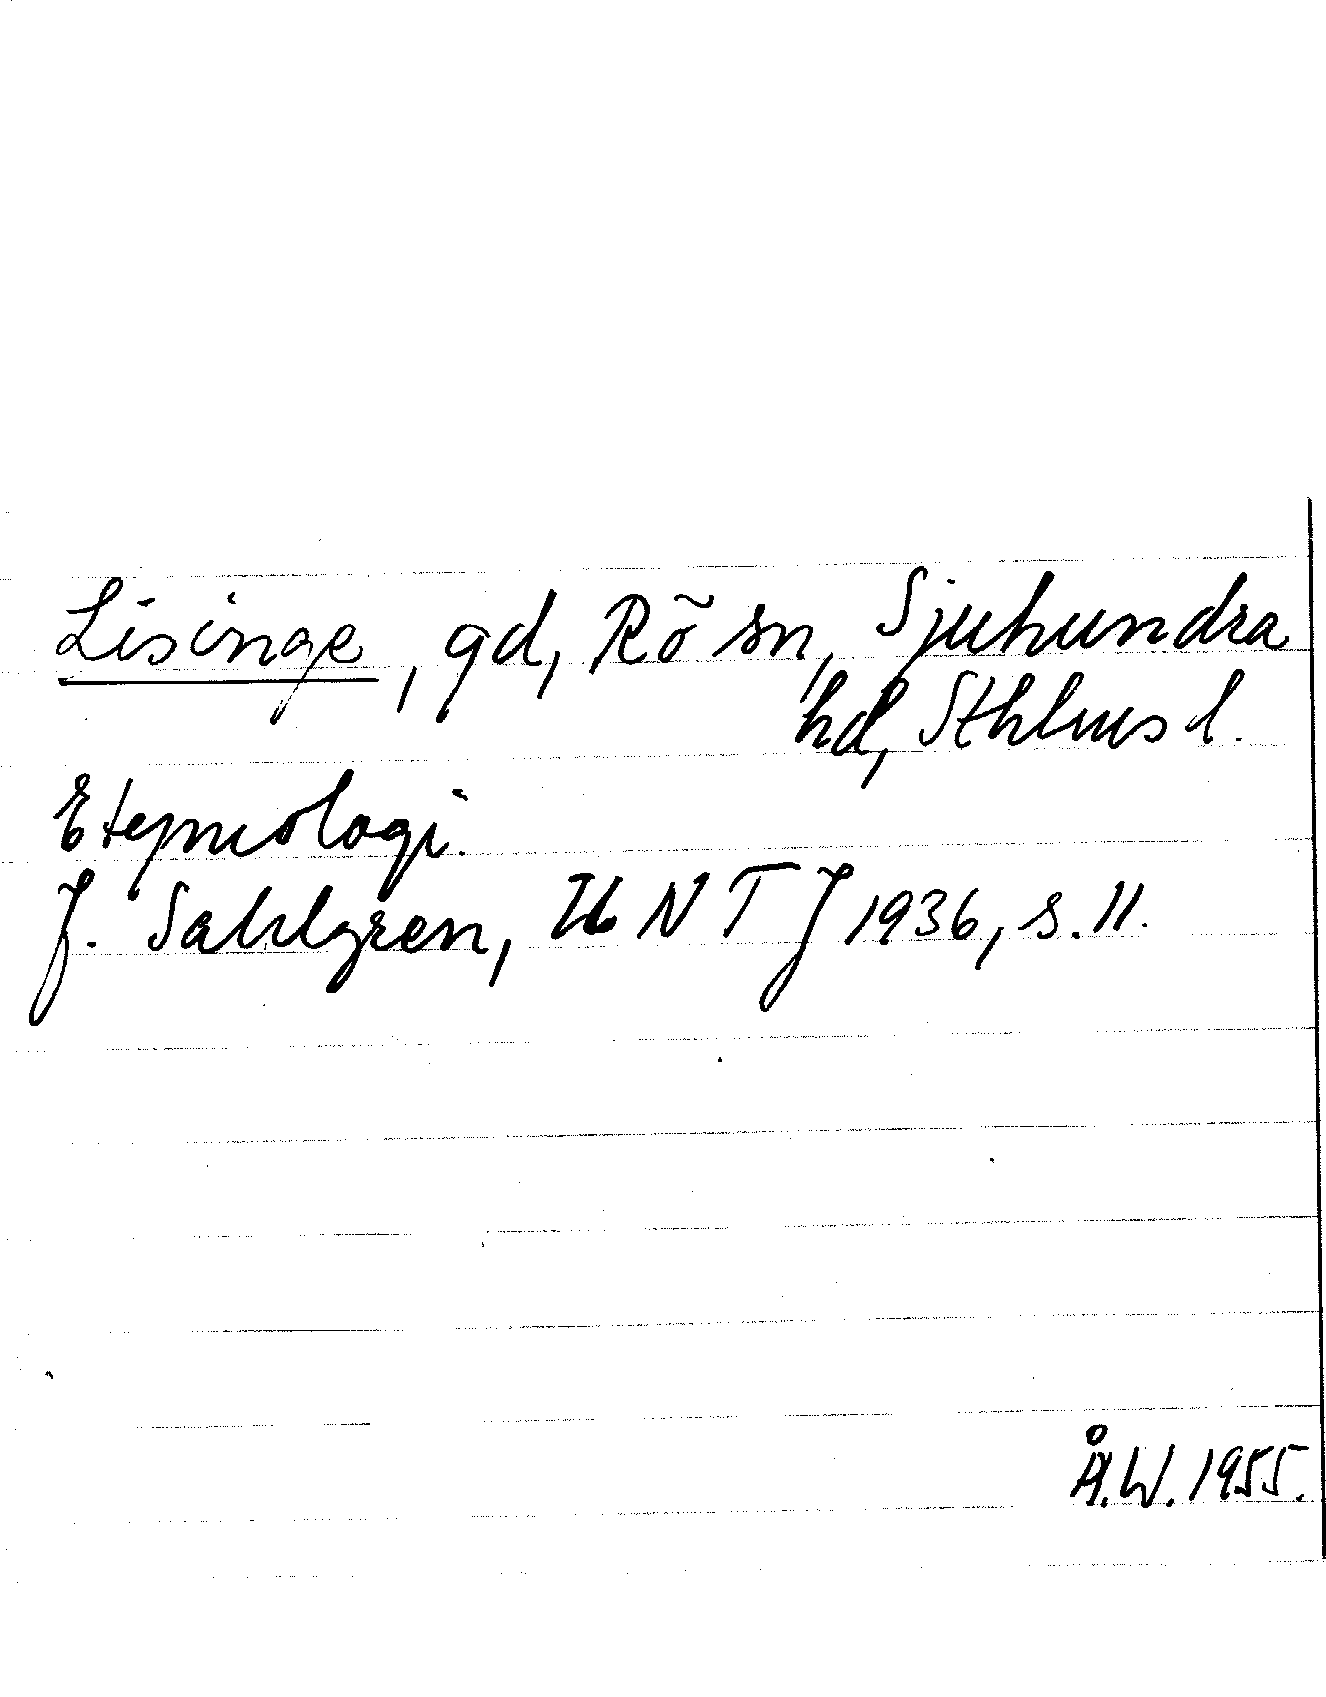 Lisinge, gd, Rö sn, Sjuhundra
hd, Sthlms l.
Etymologi.
J. Sahlgren, Ub N T J 1936, s. 11.
Å.W. 1955.